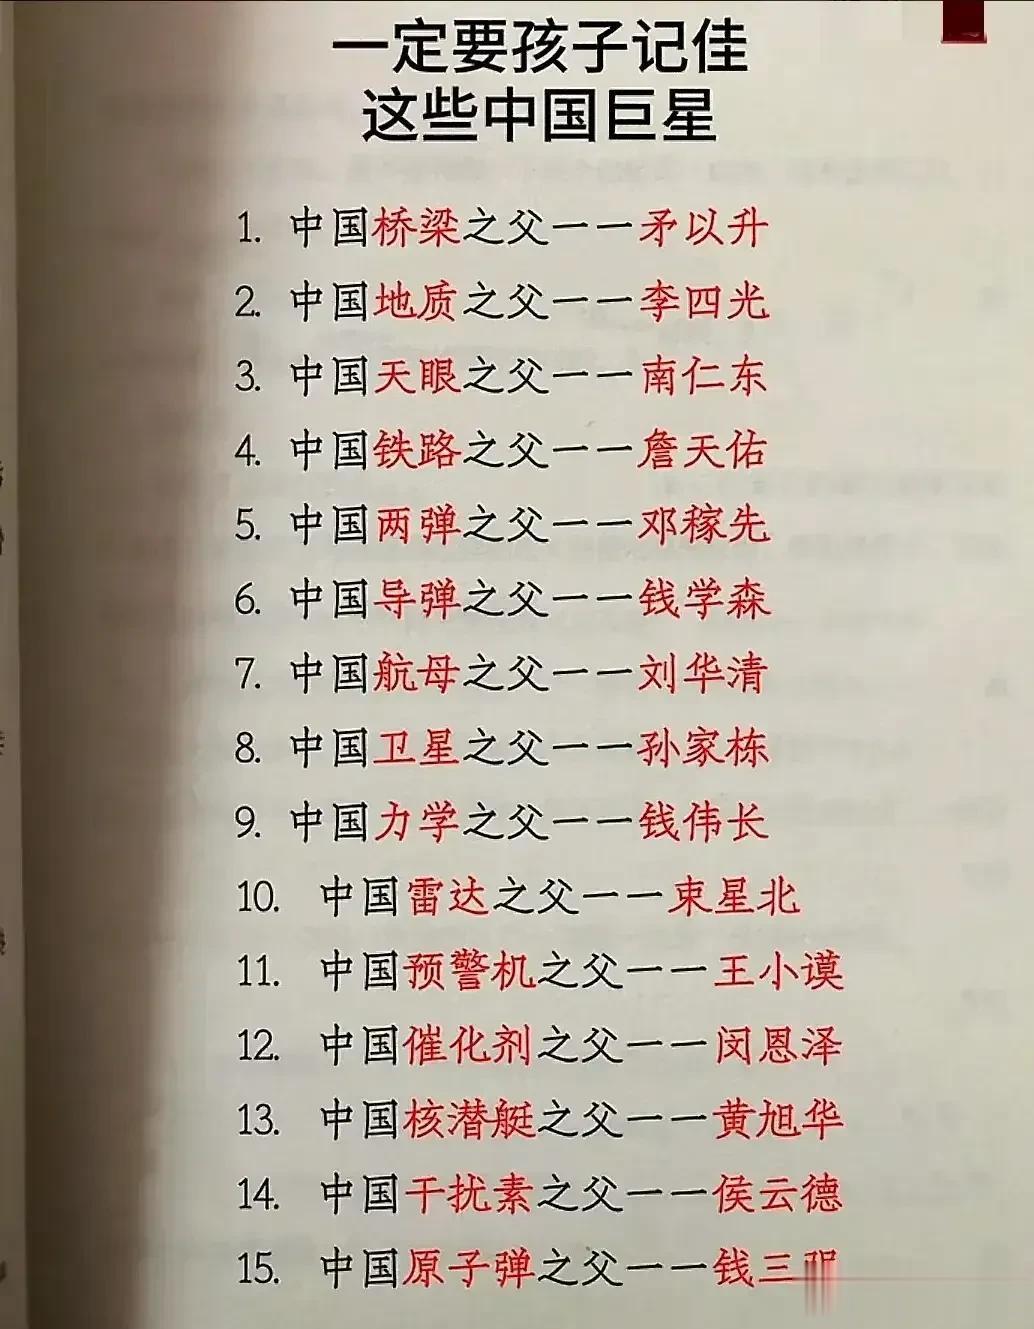 一定要孩子记佳
这些中国巨星
1. 中国桥梁之父一一矛以升
2. 中国地质之父一一李四光
3. 中国天眼之父一一南仁东
4. 中国铁路之父一一詹天佑
5. 中国两弹之父一一邓稼先
6. 中国导弹之父一一钱学森
7. 中国航母之父一一刘华清
8. 中国卫星之父一一孙家栋
9. 中国力学之父一一钱伟长
10. 中国雷达之父一一束星北
11. 中国预警机之父一一王小谟
12. 中国催化剂之父一一闵恩泽
13. 中国核潜艇之父一一黄旭华
14. 中国干扰素之父一一侯云德
15. 中国原子弹之父一一钱三